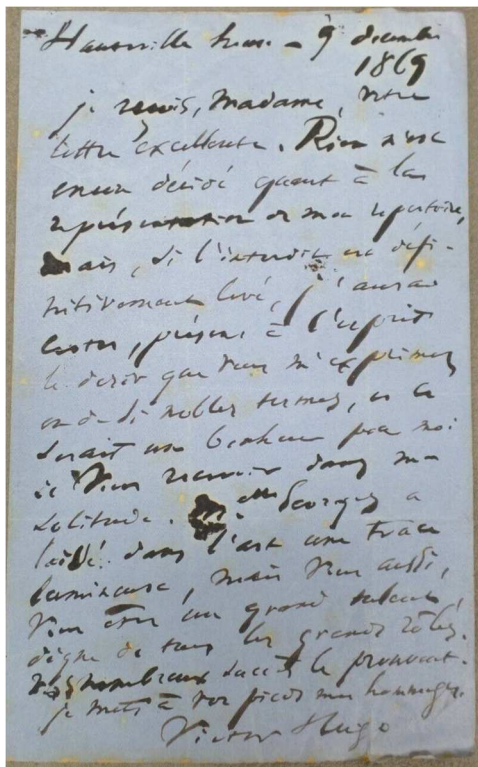 Hauteville house – 9 décembre
1869
je reçois, Madame, votre
lettre excellente. Rien n'est
encore décidé quant à la
représentation de mon répertoire,
mais, si l'interdit est défi-
nitivement levé, j'aurai
certes, présent à l'esprit
le désir que vous m'exprimez
en de si nobles termes, et ce
serait un bonheur pour moi
de vous recevoir dans ma
solitude. Melle Georges a
laissé dans l'art une trace
lumineuse, mais vous aussi,
vous êtes un grand talent
digne de tous les grands rôles.
vos nombreux succès le prouvent.
je mets à vos pieds mes hommages.
Victor Hugo